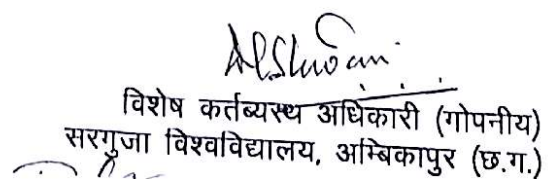 विशेष कर्तब्यस्थ अधिकारी (गोपनीय)
सरगुजा विश्वविद्यालय, अम्बिकापुर (छ.ग.)